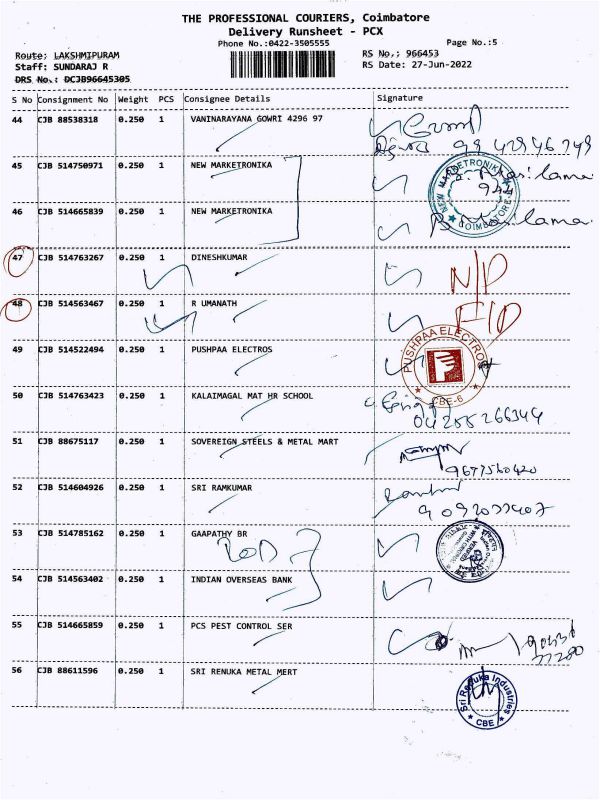 THE PROFESSIONAL COURIERS, Coimbatore
Delivery Runsheet - PCX
Phone No.:0422-3505555 Page No.:5
Route: LAKSHMIPURAM RS No.; 966453
Staff: SUNDARAJ R RS Date: 27-Jun-2022
DRS No.: DCJB96645305
S No Consignment No Weight PCS Consignee Details Signature
44 CJB 88538318 0.250 1 VANINARAYANA GOWRI 4296 97
9942946749
45 CJB 514750971 0.250 1 NEW MARKETRONIKA
46 CJB 514665839 0.250 1 NEW MARKETRONIKA
COIMBATORE
47 CJB 514763267 0.250 1 DINESHKUMAR N/P
48 CJB 514563467 0.250 1 R UMANATH F/D
49 CJB 514522494 0.250 1 PUSHPAA ELECTROS
PUSHPAA ELECTROS
CBE-6
50 CJB 514763423 0.250 1 KALAIMAGAL MAT HR SCHOOL
04255266344
51 CJB 88675117 0.250 1 SOVEREIGN STEELS & METAL MART
9677560420
52 CJB 514604926 0.250 1 SRI RAMKUMAR
9092077407
53 CJB 514785162 0.250 1 GAAPATHY BR
54 CJB 514563402 0.250 1 INDIAN OVERSEAS BANK
55 CJB 514665859 0.250 1 PCS PEST CONTROL SER
56 CJB 88611596 0.250 1 SRI RENUKA METAL MERT
Sri Renuka Industries
CBE